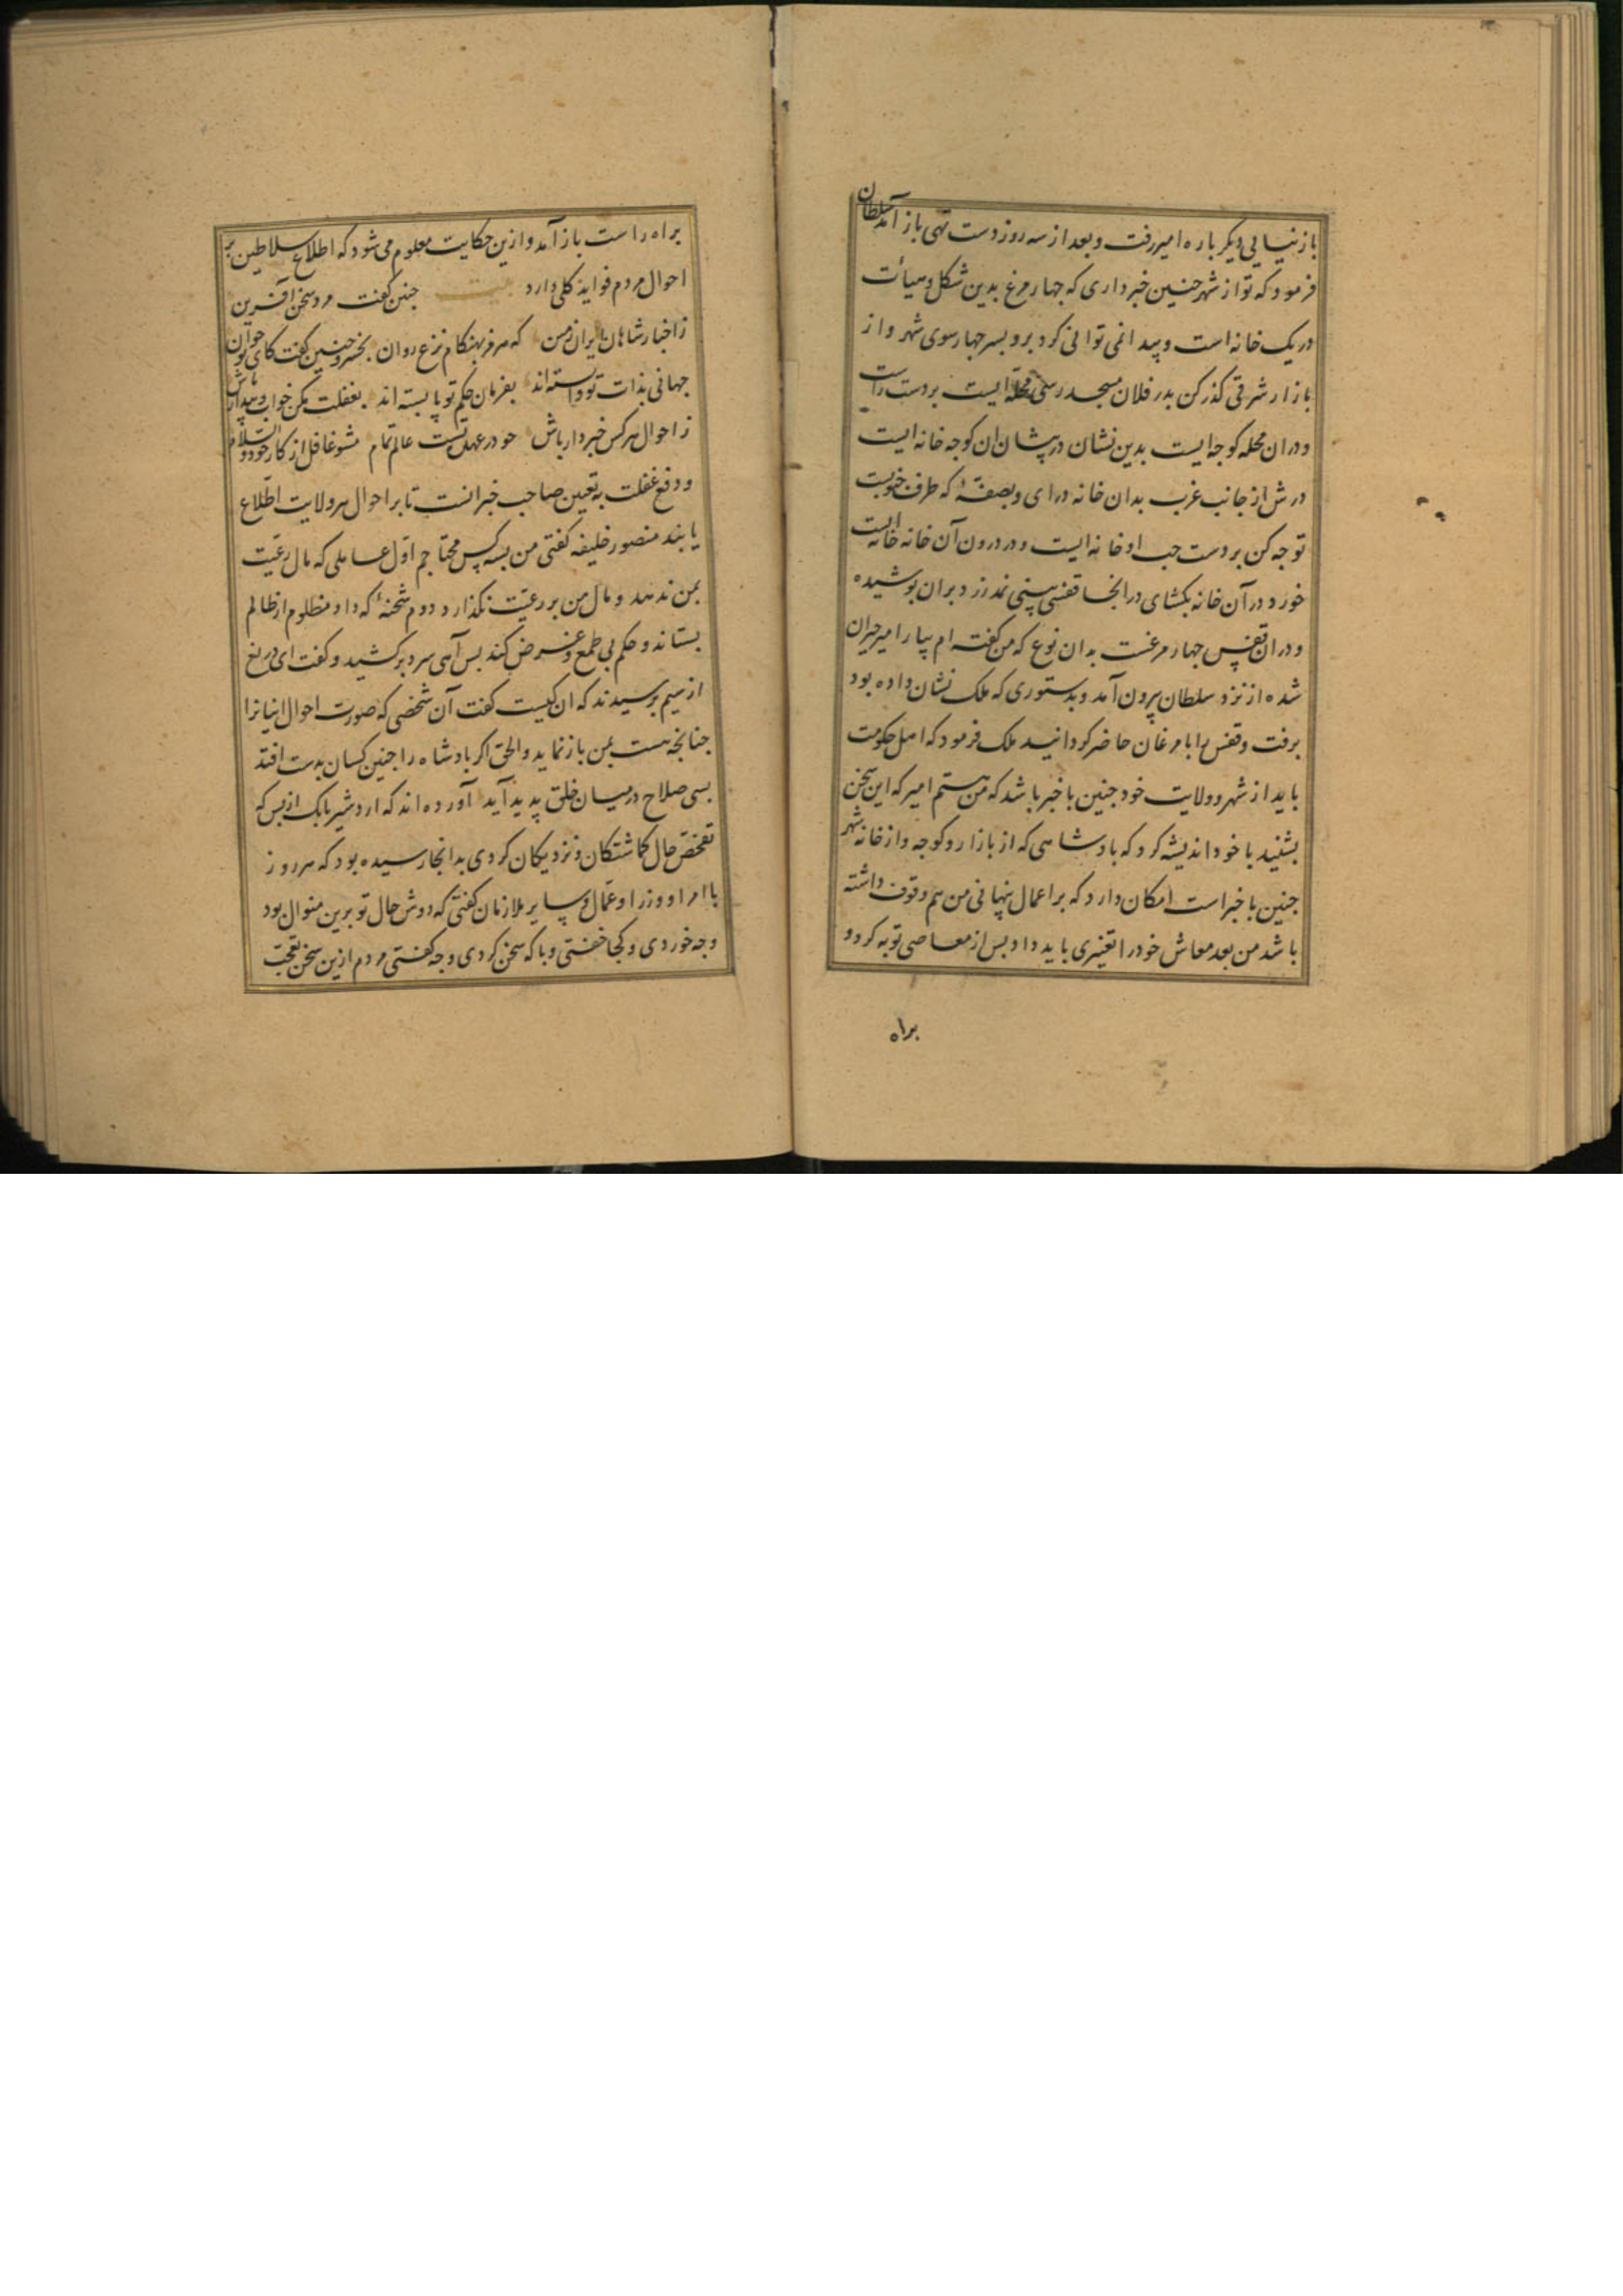 باز نیایی دیکر باره امیر رفت و بعد از سه روز دست تهی باز آمد سلطان
فرمود که تو از شهر جنین خبر داری که جهار مرغ بدین شکل و هیأت
در یک خانه است و پیدا نمی توانی کرد برو بسر جهار سوی شهر و از
بازار شرقی کذر کن بدر فلان مسجد رسی محله ایست بر دست راست
و در ان محله کوجه ایست بدین نشان در پیشان ان کوجه خانه ایست
درش از جانب غرب بدان خانه در ای و بصفهٔ که طرف جنوبست
توجه کن بر دست جب او خانه ایست و در درون آن خانه خانه ایست
خورد در آن خانه بکشای در انجا قفسی بینی نمد زرد بران بوشیده
و در ان قفس جهار مرغست بدان نوع که من کفته ام بیار امیر حیران
شده از نزد سلطان بیرون آمد و بدستوری که ملک نشان داده بود
برفت و قفس را با مرغان حاضر کردانید ملک فرمود که اهل حکومت
باید از شهر و ولایت خود جنین با خبر باشد که من هستم امیر که این سخن
بشنید با خود اندیشه کرد که بادشاهی که از بازار و کوجه و از خانه شهر
جنین با خبر است امکان دارد که بر اعمال پنهانی من هم وقوف داشته
باشد من بعد معاش خود را تغییری باید داد بس از معاصی توبه کرد و
براه
براه راست باز آمد و ازین حکایت معلوم می شود که اطلاع سلاطین بر
احوال مردم فواید کلی دارد بیت جنین کفت مرد سخن آفرین
ز اخبار شاهان ایران زمین که هرمز بهنکام نزع روان بخسرو جنین کفت کای نوجوان
جهانی بذات تو وابسته اند بفرمان حکم تو پا بسته اند بغفلت مکن خواب و بیدار باش
ز احوال هر کس خبردار باش جو در عهد تست عالم تمام مشو غافل از کار خود والسلام
و دفع غفلت به تعیین صاحب خبرانست تا بر احوال هر ولایت اطلاع
یابند منصور خلیفه کفتی من بسه کس محتاجم اول عاملی که مال رعیت
بمن ندهد و مال من بر رعیت نکذارد دوم شحنهٔ که داد مظلوم از ظالم
بستاند و حکم بی طمع و غرض کند بس آهی سرد برکشید و کفت ای دریغ
از سیم برسیدند که ان کیست کفت آن شخصی که صورت احوال اینانرا
جنانجه هست بمن باز نماید والحق اکر بادشاه را جنین کسان بدست افتد
بسی صلاح در میان خلق پدید آید آورده اند که اردشیر بابک از بس که
تفحص حال کماشتکان و نزدیکان کردی بدانجا رسیده بود که هر روز
با امرا و وزرا و عمال و سایر ملازمان کفتی که دوش حال تو برین منوال بود
و جه خوردی و کجا خفتی و با که سخن کردی و جه کفتی مردم ازین سخن تعجب